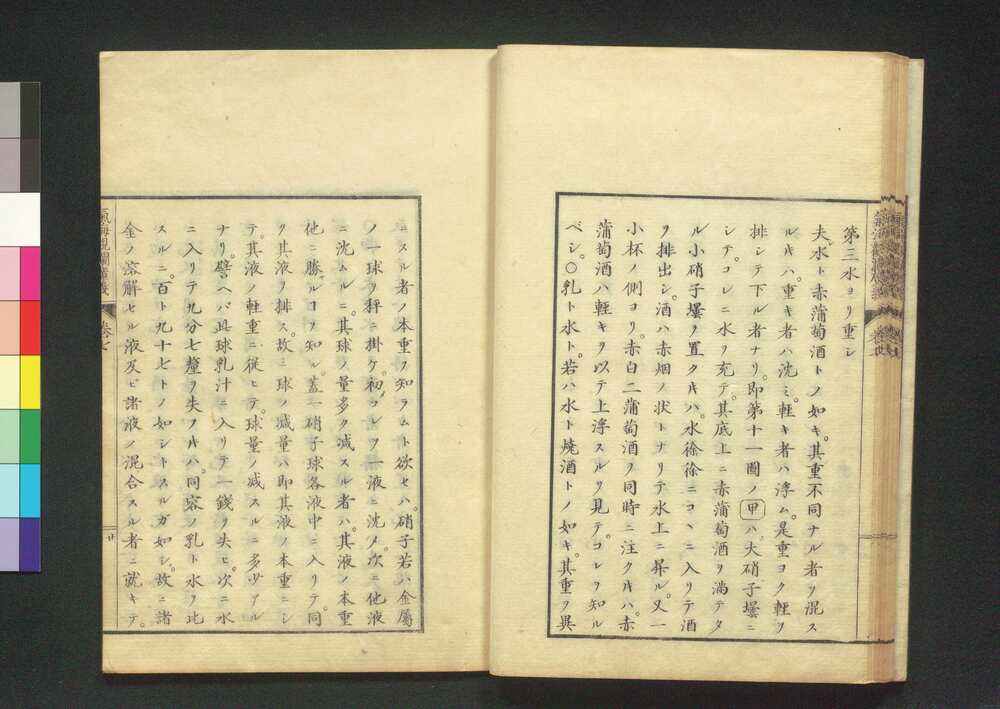 第三水ヨリ重シ
夫水ト赤葡萄酒トノ如キ。其重不同ナル者ヲ混ス
ルキハ。重キ者ハ沈ミ。軽キ者ハ浮ム。是重ヨク軽ヲ
排シテ下ル者ナリ。即第十一圖ノ甲ハ。大硝子壜ニ
シテ。コレニ水ヲ充テ。其底上ニ赤葡萄酒ヲ満テタ
ル小硝子壜ヲ置クキハ。水徐徐ニコヽニ入リテ酒
ヲ排出シ。酒ハ赤烟ノ状トナリテ水上ニ昇ル。又一
小杯ノ側ヨリ。赤白二葡萄酒ヲ同時ニ注クキハ。赤
葡萄酒ハ軽キヲ以テ上浮スルヲ見テ。コレヲ知ル
ベシ。〇乳ト水ト。若ハ水ト焼酒トノ如キ。其重ヲ異
ニスル者ノ本重ヲ知ラムト欲セハ。硝子若ハ金屬
ノ一球ヲ秤ニ掛ケ。初コレヲ一液ニ沈メ。次ニ他液
ニ沈ムルニ。其球ノ量多ク減スル者ハ。其液ノ本重
他ニ勝ルコヲ知ル。蓋一硝子球各液中ニ入リテ。同
ク其液ヲ排ス。故ニ球ノ減量ハ即其液ノ本重ニシ
テ。其液ノ軽重ニ従ヒテ。球量ノ减スルニ多少アル
ナリ。譬ヘバ此球乳汁ニ入リテ一錢ヲ失ヒ。次ニ水
ニ入リテ九分七釐ヲ失フキハ。同容ノ乳ト水ヲ比
スルニ。百ト九十七トノ如シトスルガ如シ。故ニ諸
金ノ溶解セル液及ヒ諸液ノ混合スル者ニ就キテ。
氣海觀瀾廣義
卷七
廿